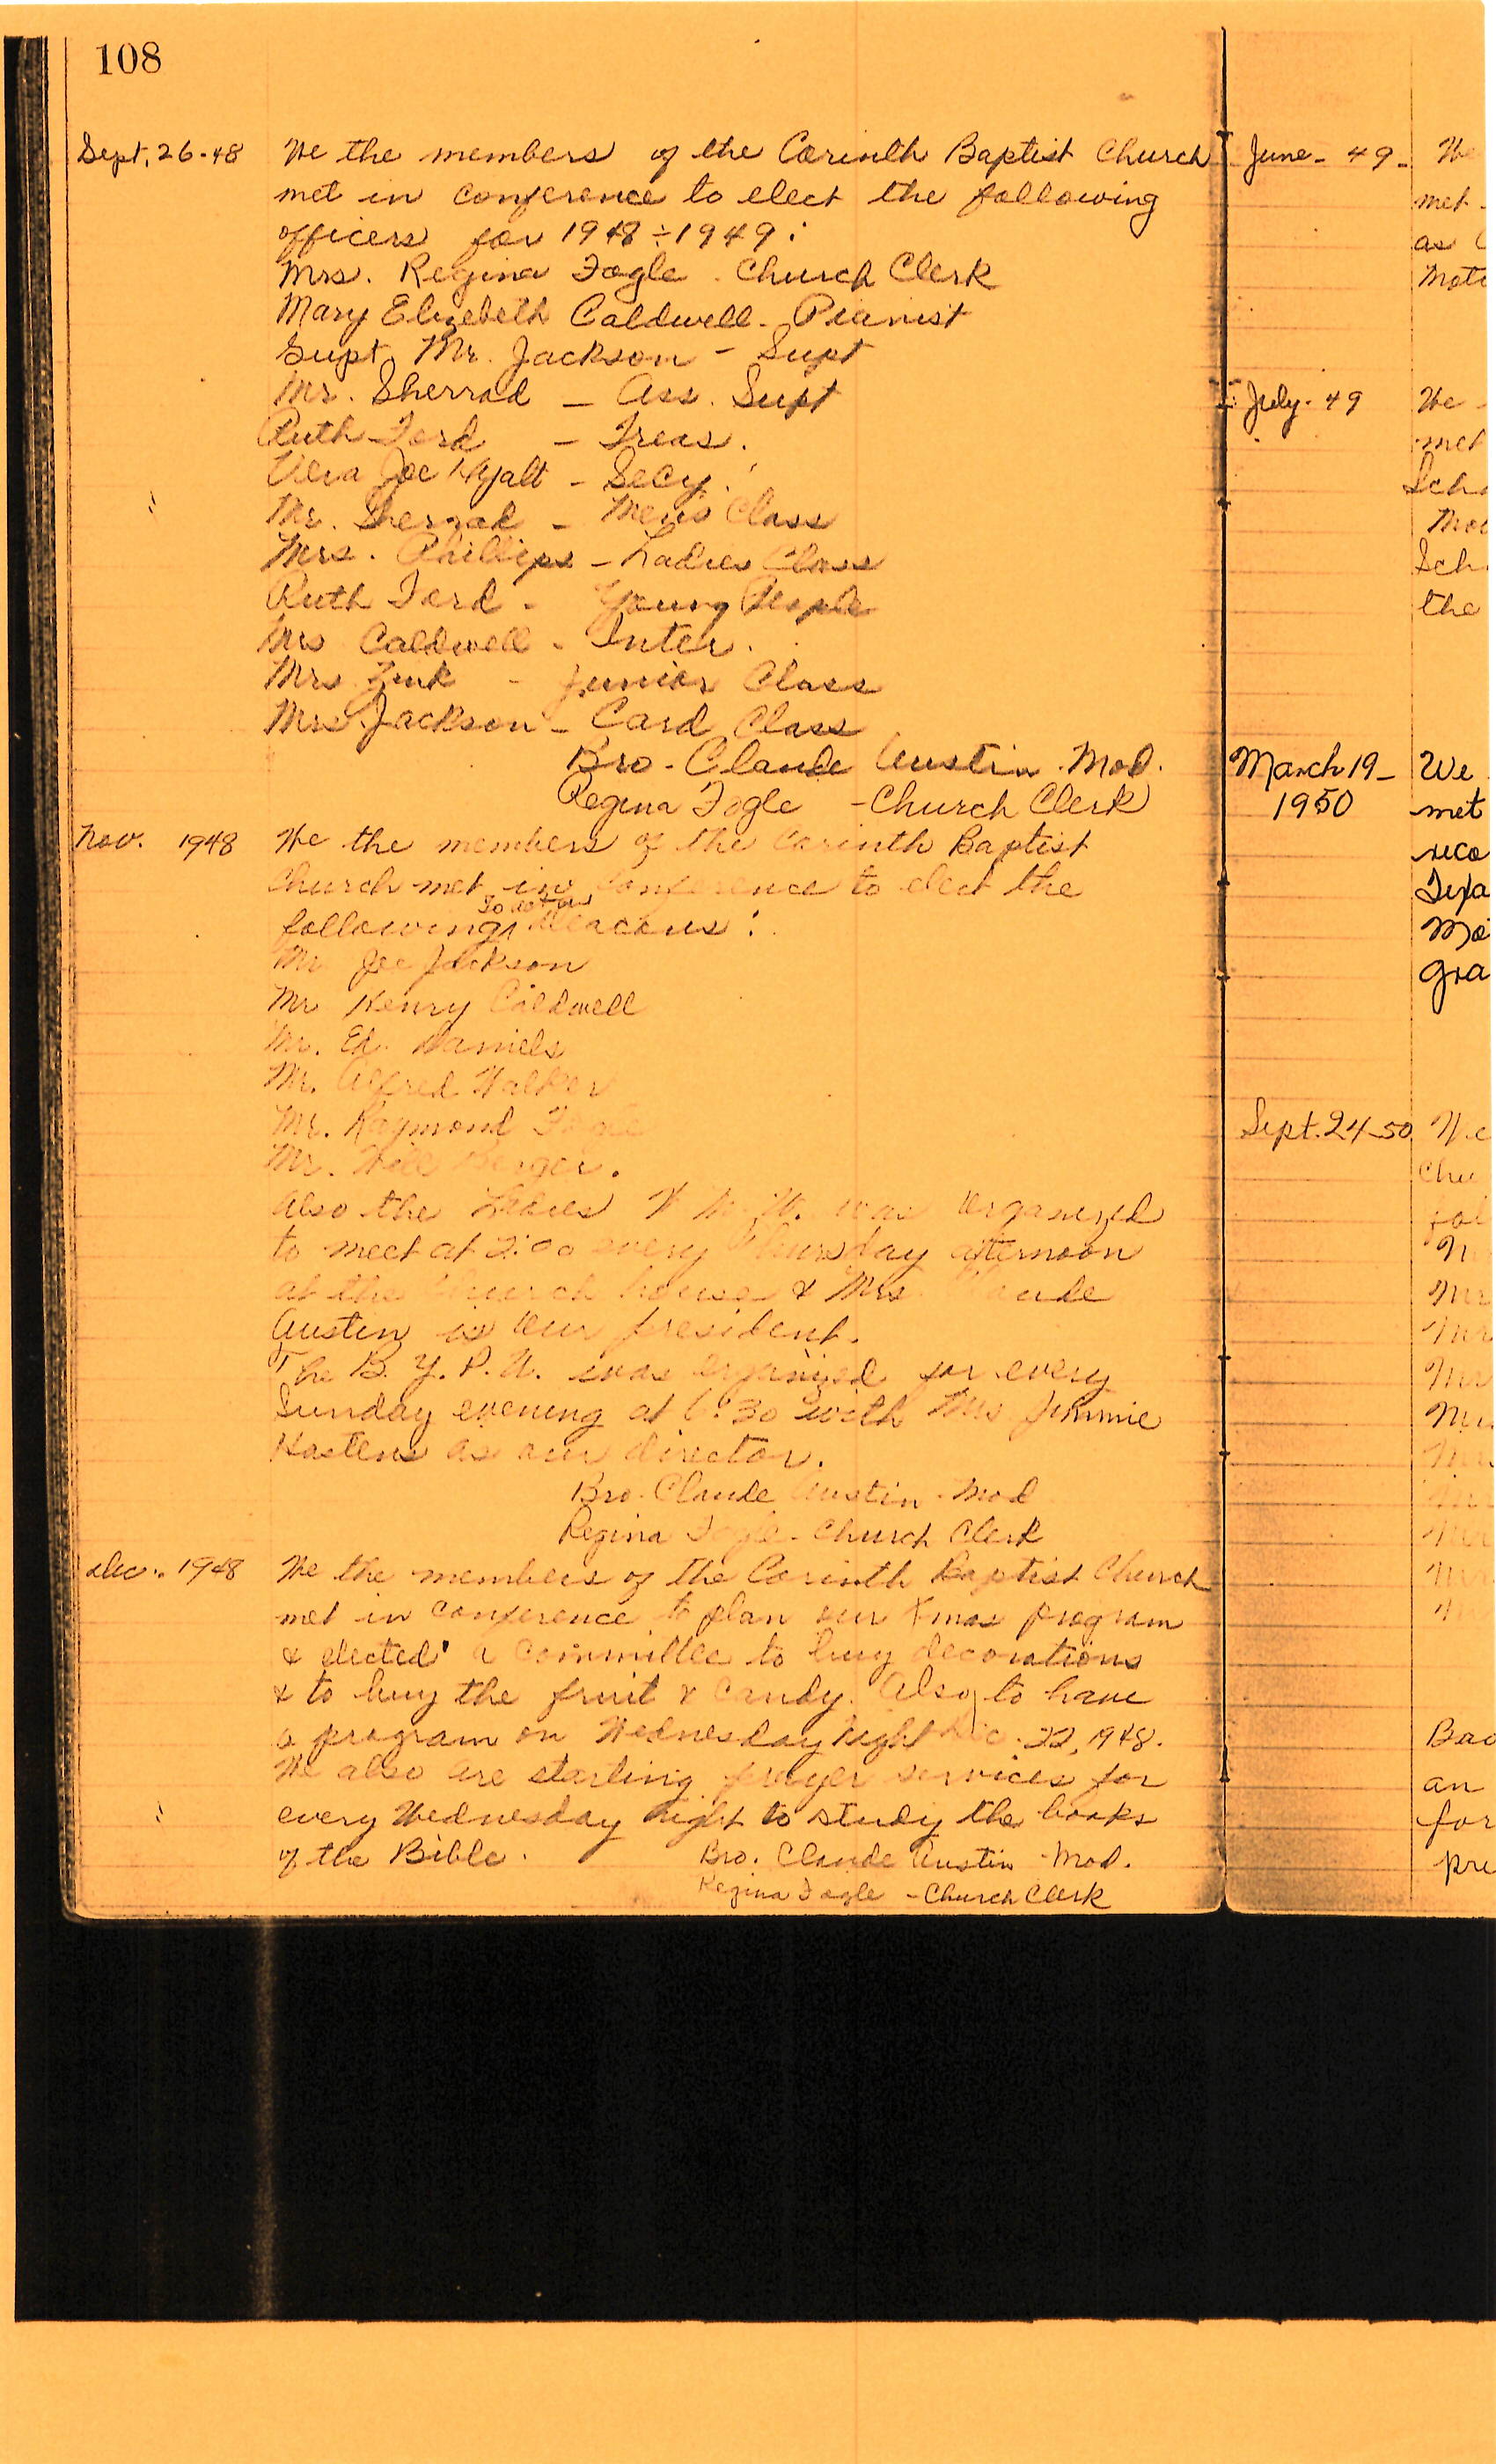 108
Sept. 26-48 We the members of the Corinth Baptist Church
met in conference to elect the following
officers for 1948-1949:
Mrs. Regina Fogle - Church Clerk
Mary Elizebeth Caldwell - Pianist
Supt. Mr. Jackson - Supt
Mr. Sherrod - Ass. Supt
Ruth Ford - Treas.
Vera Joe Wyatt - Secy.
Mr. Sherrod - Men's Class
Mrs. Phillips - Ladies Class
Ruth Ford - Young People
Mrs Caldwell - Inter.
Mrs. - Junior Class
Mrs. Jackson - Card Class
Bro. Claude Austin - Mod.
Regina Fogle - Church Clerk
Nov. 1948 We the members of the Corinth Baptist
Church met in conference to elect the
to act as
following deacons:
Mr Joe Jackson
Mr Henry Caldwell
Mr. Ed. Daniels
Mr. Alfred Walker
Mr. Raymond Fogle
Mr. Will
Also the Ladies W. M. U. was organized
to meet at 2:00 every Thursday afternoon
at the church house & Mrs. Claude
Austin is our president.
The B. Y. P. U. was organized for every
Sunday evening at 6:30 with Mrs Jimmie
as our director.
Bro. Claude Austin - Mod
Regina Fogle - Church Clerk
Dec. 1948 We the members of the Corinth Baptist Church
met in conference to plan our Xmas program
& elected a committee to buy decorations
& to buy the fruit & candy. Also to have
a program on Wednesday night Dec. 22, 1948.
We also are starting prayer services for
every Wednesday night to study the books
of the Bible.
Bro. Claude Austin - Mod.
Regina Fogle - Church Clerk
June - 49 - We
met
as
July - 49 We
met
the
March 19 - We
1950 met
Sept. 24-50 We
an
for